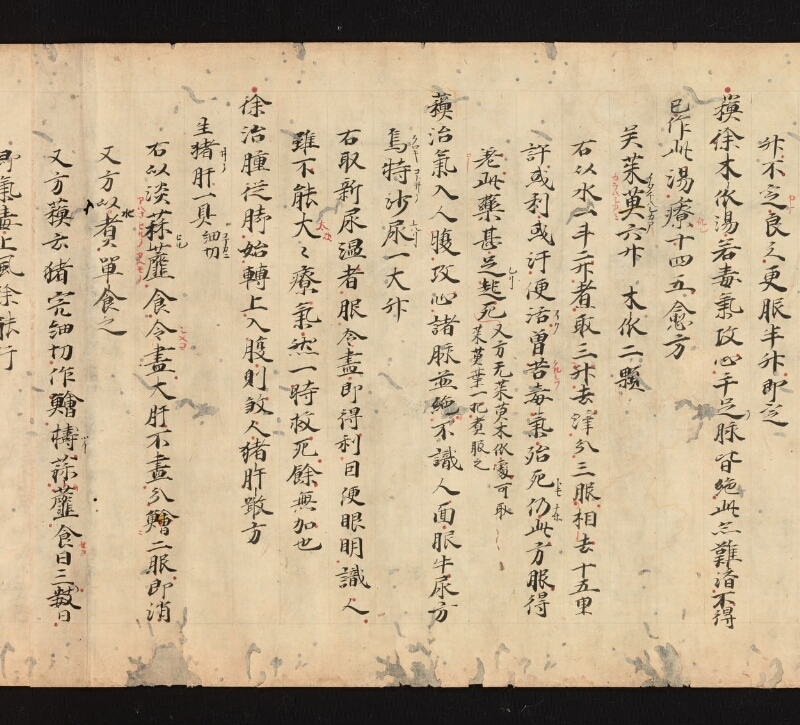 升不定良久更服半升即定
蘓徐木依湯若毒氣攻心手足脉皆絶此亦難済不得
已作此湯療十四五愈方
吴茱萸六升 木依二顆
右以水一斗二升者取三升去滓分三服相去十五里
許或利或汗便活曽苦毒氣殆死仍此方服得
此藥甚足起死又方无茱萸木依處可取
茱萸葉一把煮服之
蘓治氣入人腹攻心諸脉並絶不識人面服牛尿方
烏特沙尿一大升
右取新尿温者服令盡即得利目便眼明識人
雖不能大々療氣然一時救死餘無加也
徐治腫従脚始轉上入腹則煞人猪肝散方
生猪肝一具細切
右以淡蒜虀食令盡大肝不盡分鱠二服即消
又方以水煮單食之
又方蘓云猪宍細切作鱠擣蒜虀食日三數日
即氣毒上風除能行